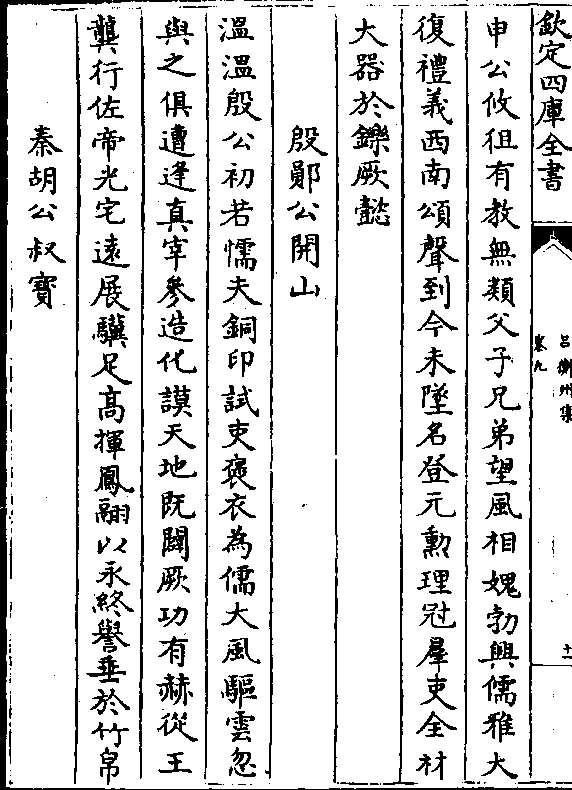 欽定四庫全書
呂衡州集
卷九
十一
申公攸徂有教無類父子兄弟望風相媿勃興儒雅大
復禮義西南頌聲到今未墜名登元勳理冠羣吏全材
大器於鑠厥懿
殷鄖公開山
溫溫殷公初若懦夫銅印試吏褒衣為儒大風驅雲忽
與之俱遭逢真宰參造化謨天地既闢厥功有赫從王
龔行佐帝光宅遠展驥足高揮鳳翮以永終譽垂於竹帛
秦胡公叔寶